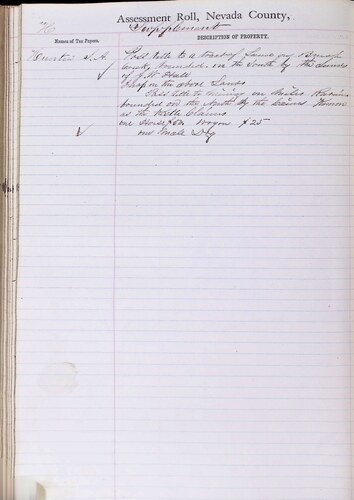 Assessment Roll, Nevada County,
Supplement
Names of Tax Payers.
DESCRIPTION OF PROPERTY.
Hunter S. A. Poss title to a tract of Land in
bounded on the South by the Lands
of J. W. Hall
Imp on the above Lands
Poss title to Mining
bounded on the North by the Claims Known
as the Claims
one Horse Wagon $25
one Male Dog